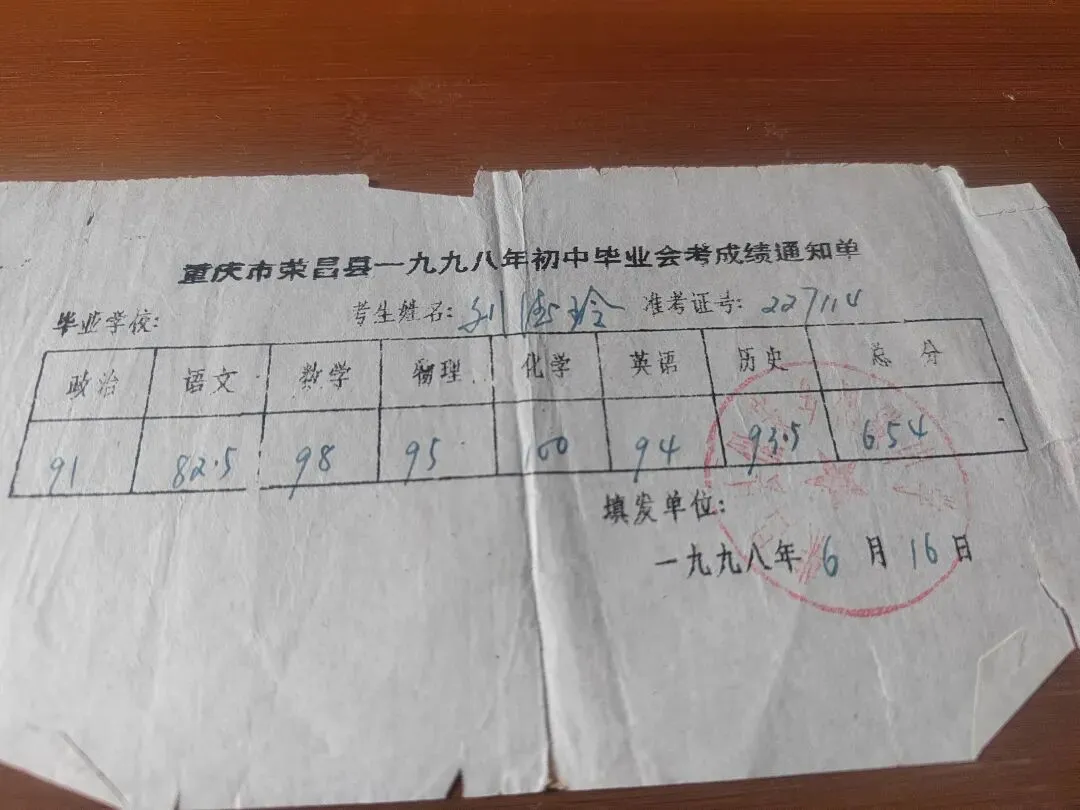 重庆市荣昌县一九九八年初中毕业会考成绩通知单
毕业学校: 考生姓名: 准考证号: 227114
政治 语文 数学 物理 化学 英语 历史 总分
91 82.5 98 95 100 94 93.5 654
填发单位:
一九九八年 6 月 16 日